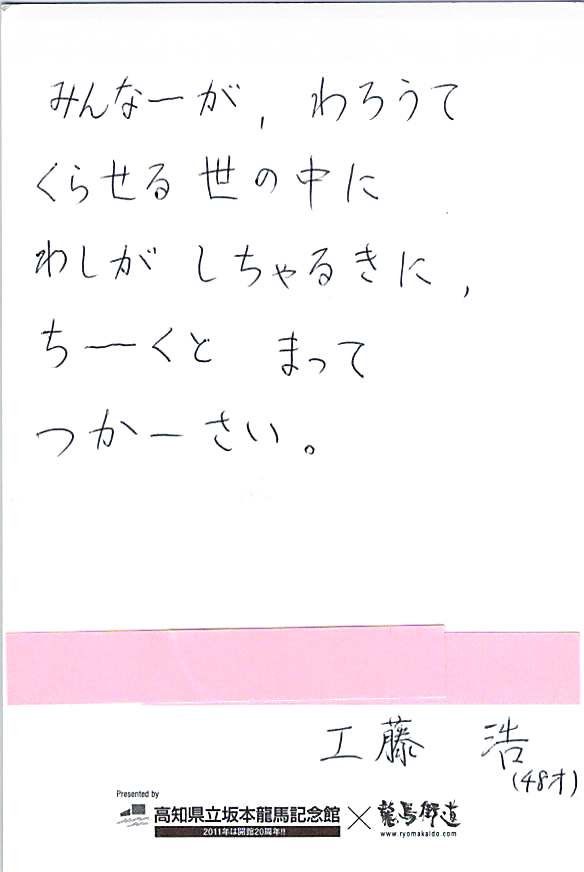 みんなーが, わろうて
くらせる 世の中に
わしが しちゃるきに,
ちーくと まって
つかーさい。
工藤 浩
(48才)
Presented by
高知県立坂本龍馬記念館 × 龍馬街道
2011年は開館20周年!!
www.ryomakaido.com